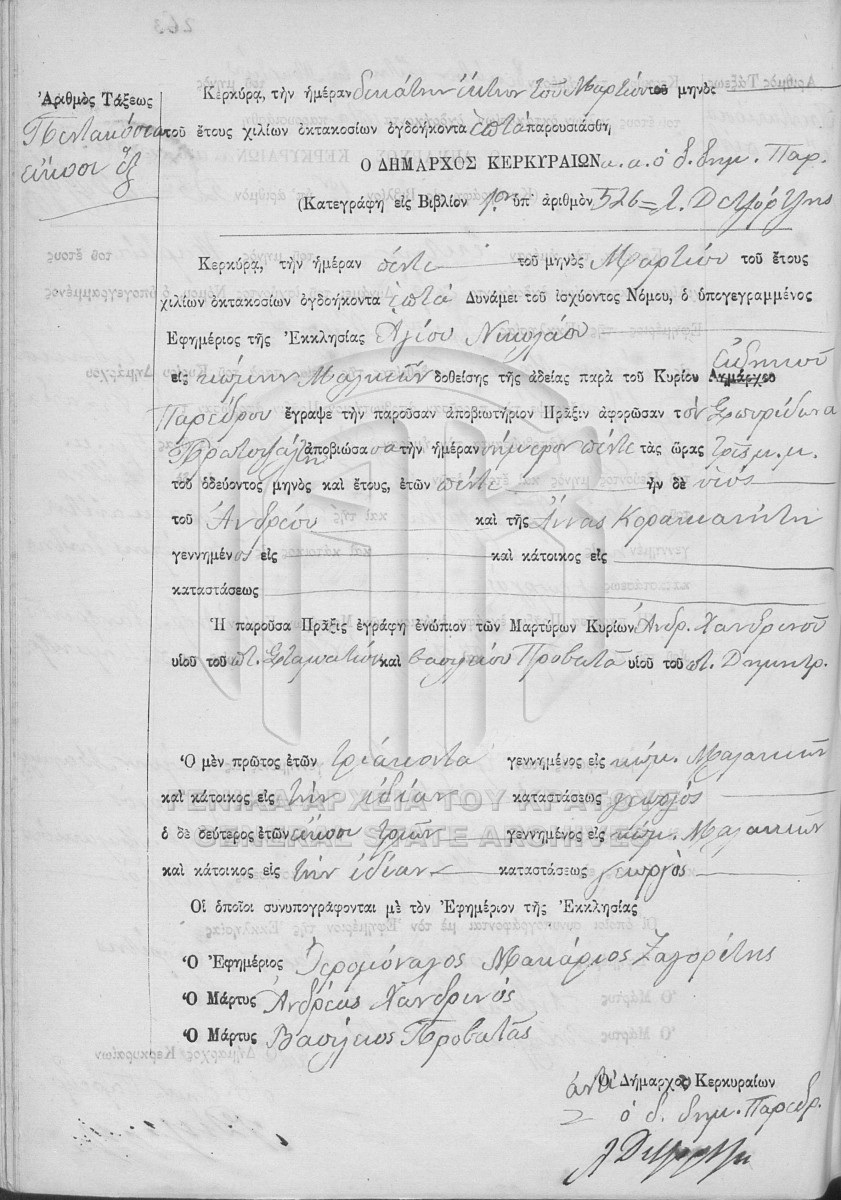 Ἀριθμὸς Τάξεως
Πεντακόσια
εἴκοσι ἕξ
Κερκύρα, τὴν ἡμέραν δεκάτην ἕκτην τοῦ Μαρτίου τοῦ μηνὸς
τοῦ ἔτους χιλίων ὀκτακοσίων ὀγδοήκοντα ἑπτὰ παρουσιάσθη
Ὁ ΔΗΜΑΡΧΟΣ ΚΕΡΚΥΡΑΙΩΝ κ.α. ὁ δ. δημ. Παρ.
(Κατεγράφη εἰς Βιβλίον 1ον ὑπ' ἀριθμὸν 526 =
Κερκύρα, τὴν ἡμέραν πέντε τοῦ μηνὸς Μαρτίου τοῦ ἔτους
χιλίων ὀκτακοσίων ὀγδοήκοντα ἑπτὰ Δυνάμει τοῦ ἰσχύοντος Νόμου, ὁ ὑπογεγραμμένος
Ἐφημέριος τῆς Ἐκκλησίας Ἁγίου Νικολάου
εἰς κώμην Μαλακιῶν δοθείσης τῆς ἀδείας παρὰ τοῦ Κυρίου Δημάρχου εἰδηκοῦ
Παρέδρου ἔγραψε τὴν παροῦσαν ἀποβιωτήριον Πρᾶξιν ἀφορῶσαν τὸν Σπυρίδωνα
Πρωτοψάλτη ἀποβιώσαντα τὴν ἡμέραν σήμερον πέντε τὰς ὥρας τρεῖς μ.μ.
τοῦ ὁδεύοντος μηνὸς καὶ ἔτους, ἐτῶν πέντε ἦν δὲ υἱὸς
τοῦ Ἀνδρέου καὶ τῆς Ἄννας Κορακιανίτη
γεννημένος εἰς καὶ κάτοικος εἰς
καταστάσεως
Ἡ παροῦσα Πρᾶξις ἐγράφη ἐνώπιον τῶν Μαρτύρων Κυρίων Ἀνδρ. Χανδρινοῦ
υἱοῦ τοῦ ποτ. Σταματίου καὶ Βασιλείου Προβατᾶ υἱοῦ τοῦ ποτ. Δημητρ.
Ὁ μὲν πρῶτος ἐτῶν τριάκοντα γεννημένος εἰς κώμ. Μαλακιῶν
καὶ κάτοικος εἰς τὴν ἰδίαν καταστάσεως γεωργὸς
ὁ δὲ δεύτερος ἐτῶν εἴκοσι τριῶν γεννημένος εἰς κώμ. Μαλακιῶν
καὶ κάτοικος εἰς τὴν ἰδίαν καταστάσεως γεωργὸς
Οἱ ὁποῖοι συνυπογράφονται μὲ τὸν Ἐφημέριον τῆς Ἐκκλησίας
Ὁ Ἐφημέριος Ἱερομόναχος Μακάριος Ζαγορίτης
Ὁ Μάρτυς Ἀνδρέας Χανδρινός
Ὁ Μάρτυς Βασίλειος Προβατᾶς
ἀντὶ Ὁ Δήμαρχος Κερκυραίων
ὁ δ. δημ. Παρεδρ.
ΓΕΝΙΚΑ ΑΡΧΕΙΑ ΤΟΥ ΚΡΑΤΟΥΣ
GENERAL STATE ARCHIVES